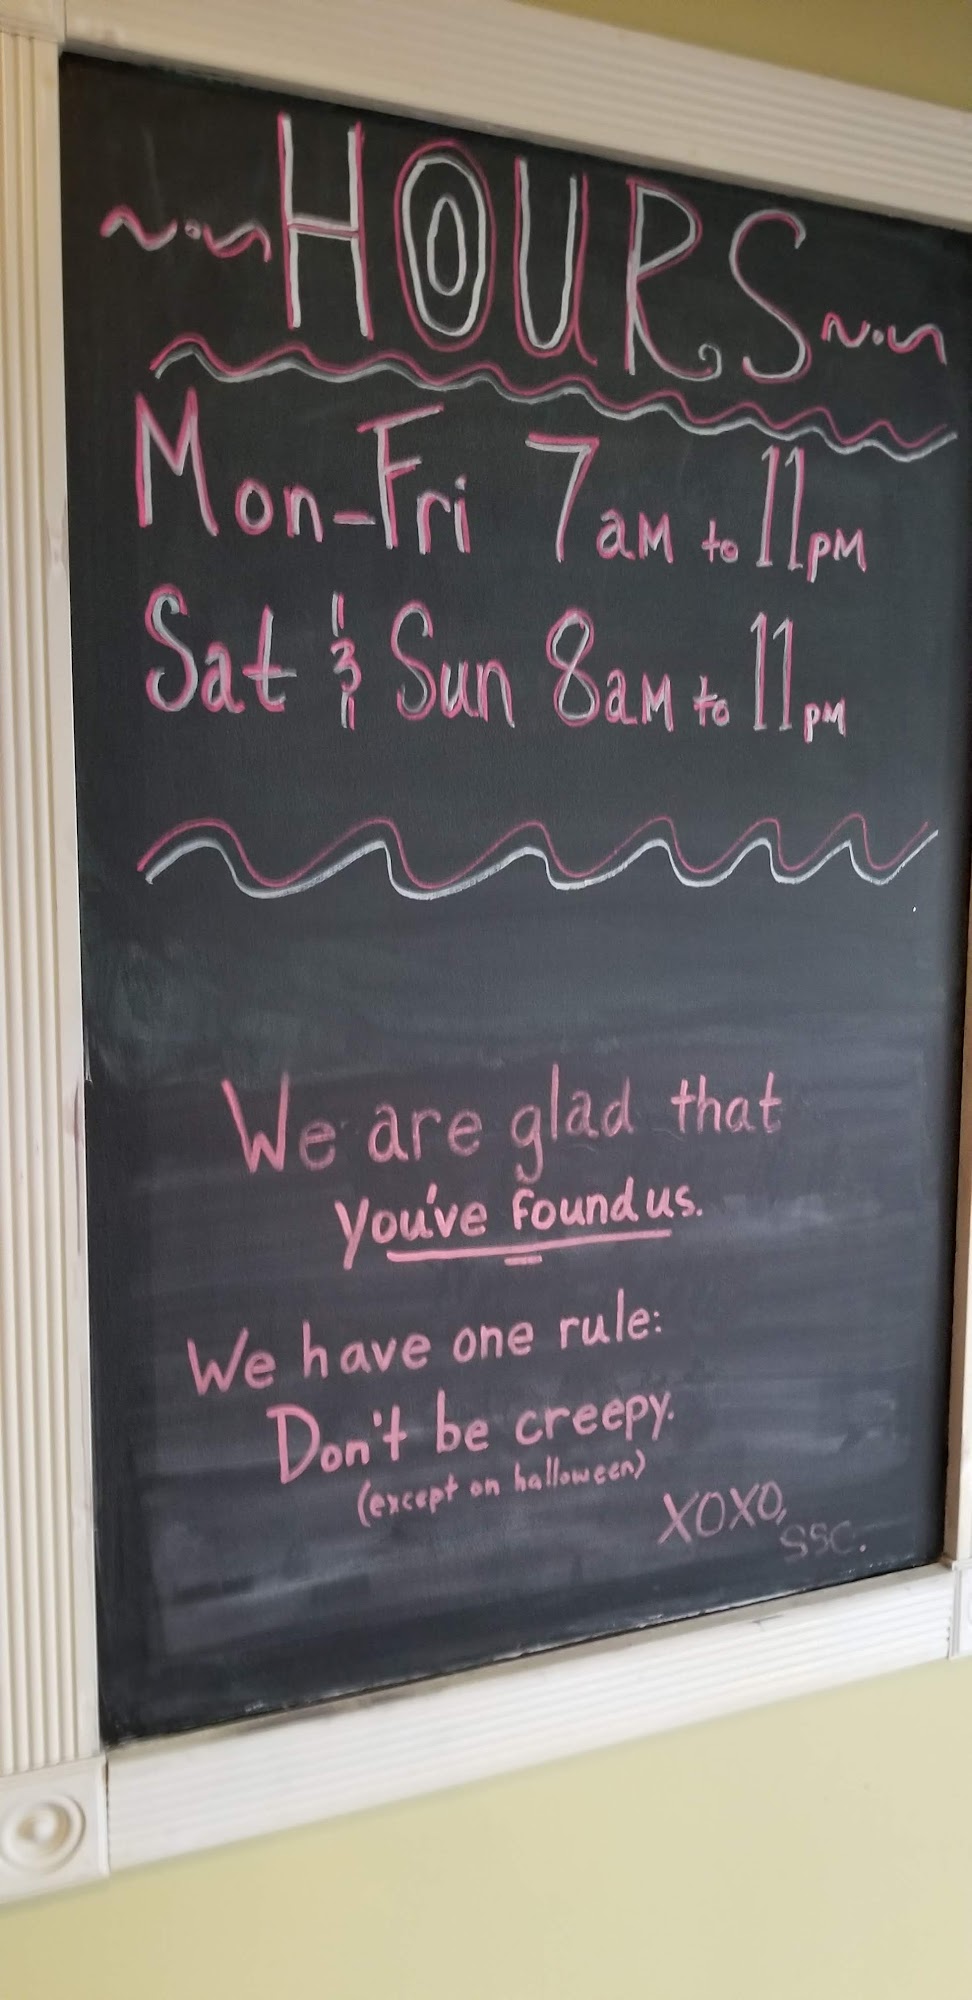 HOURS
Mon-Fri 7am to 11pm
Sat & Sun 8am to 11pm
We are glad that
you've found us.
We have one rule:
Don't be creepy.
(except on halloween)
XOXO,
SSC.